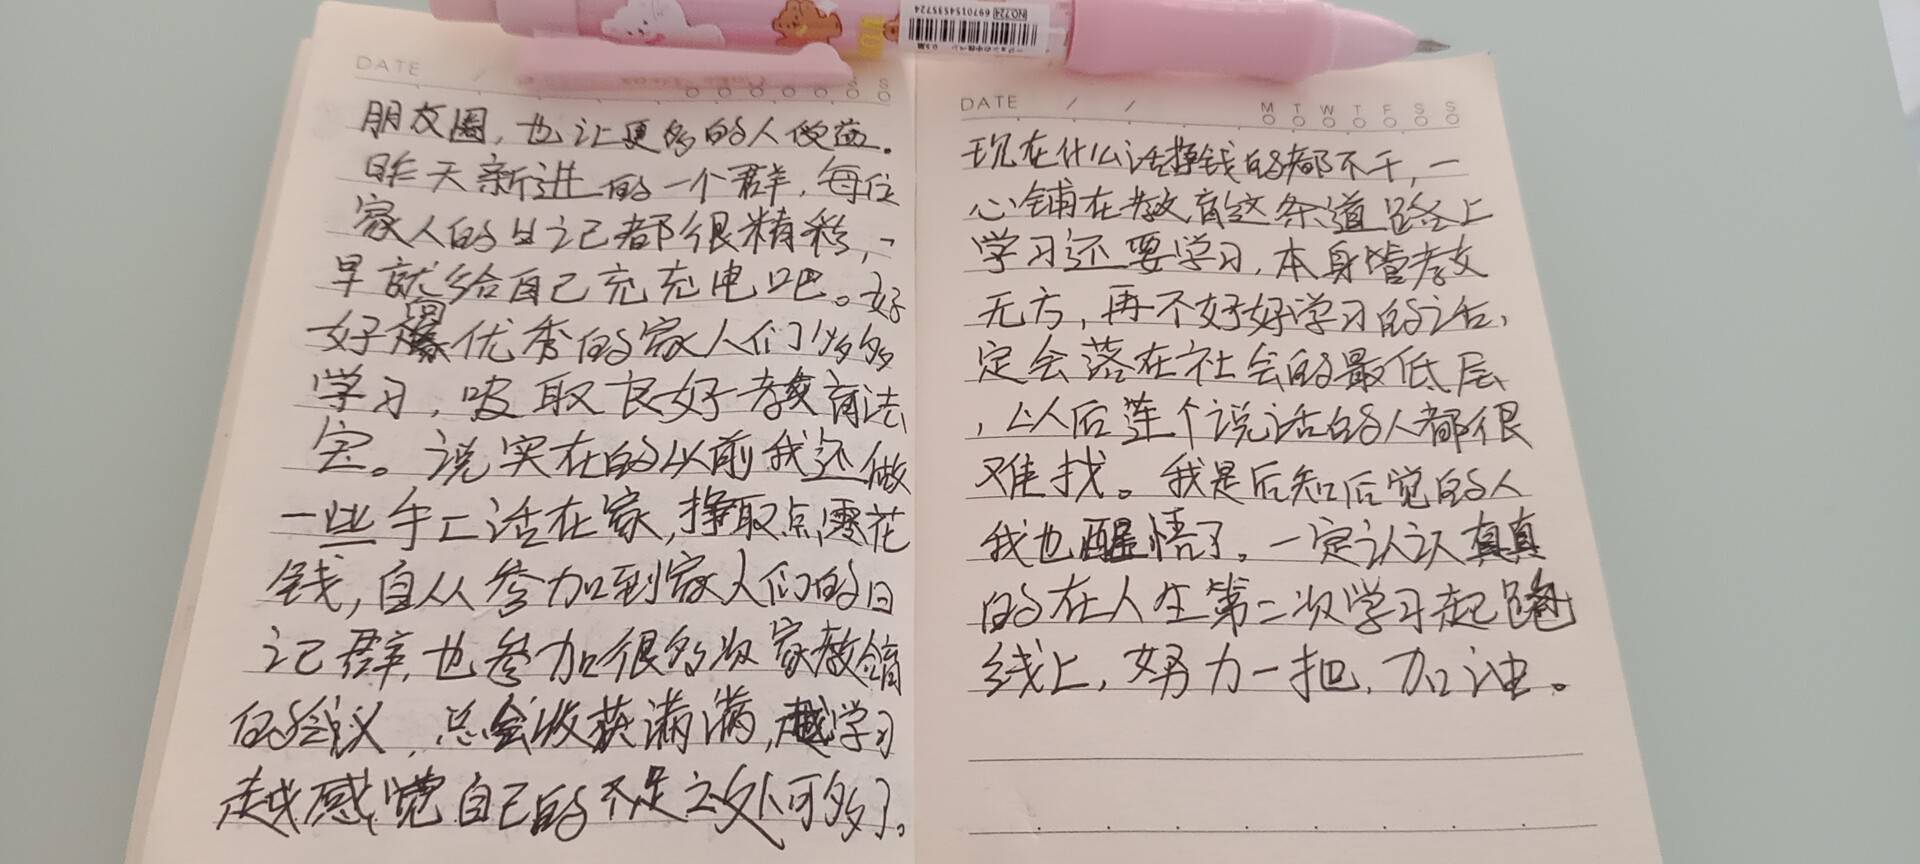 NO.724
6970154535724
DATE
S
朋友圈，也让更多的人受益。
昨天新进的一个群，每位
家人的日记都很精彩，一
早就给自己充充电吧。好
好向优秀的家人们多多
学习，吸取良好教育法
宝。说实在的以前我还做
一些手工活在家，挣取点零花
钱，自从参加到家人们的日
记群，也参加很多次家教
的会议，总会收获满满，越学习
越感觉自己的不足之处可多了。
DATE / /
M T W T F S S
现在什么活挣钱的都不干，一
心铺在教育这条道路上
学习还要学习，本身管孝女
无方，再不好好学习的话，
定会落在社会的最低层
，以后连个说话的人都很
难找。我是后知后觉的人
我也醒悟了。一定认认真真
的在人生第二次学习起跑
线上，努力一把，加油。